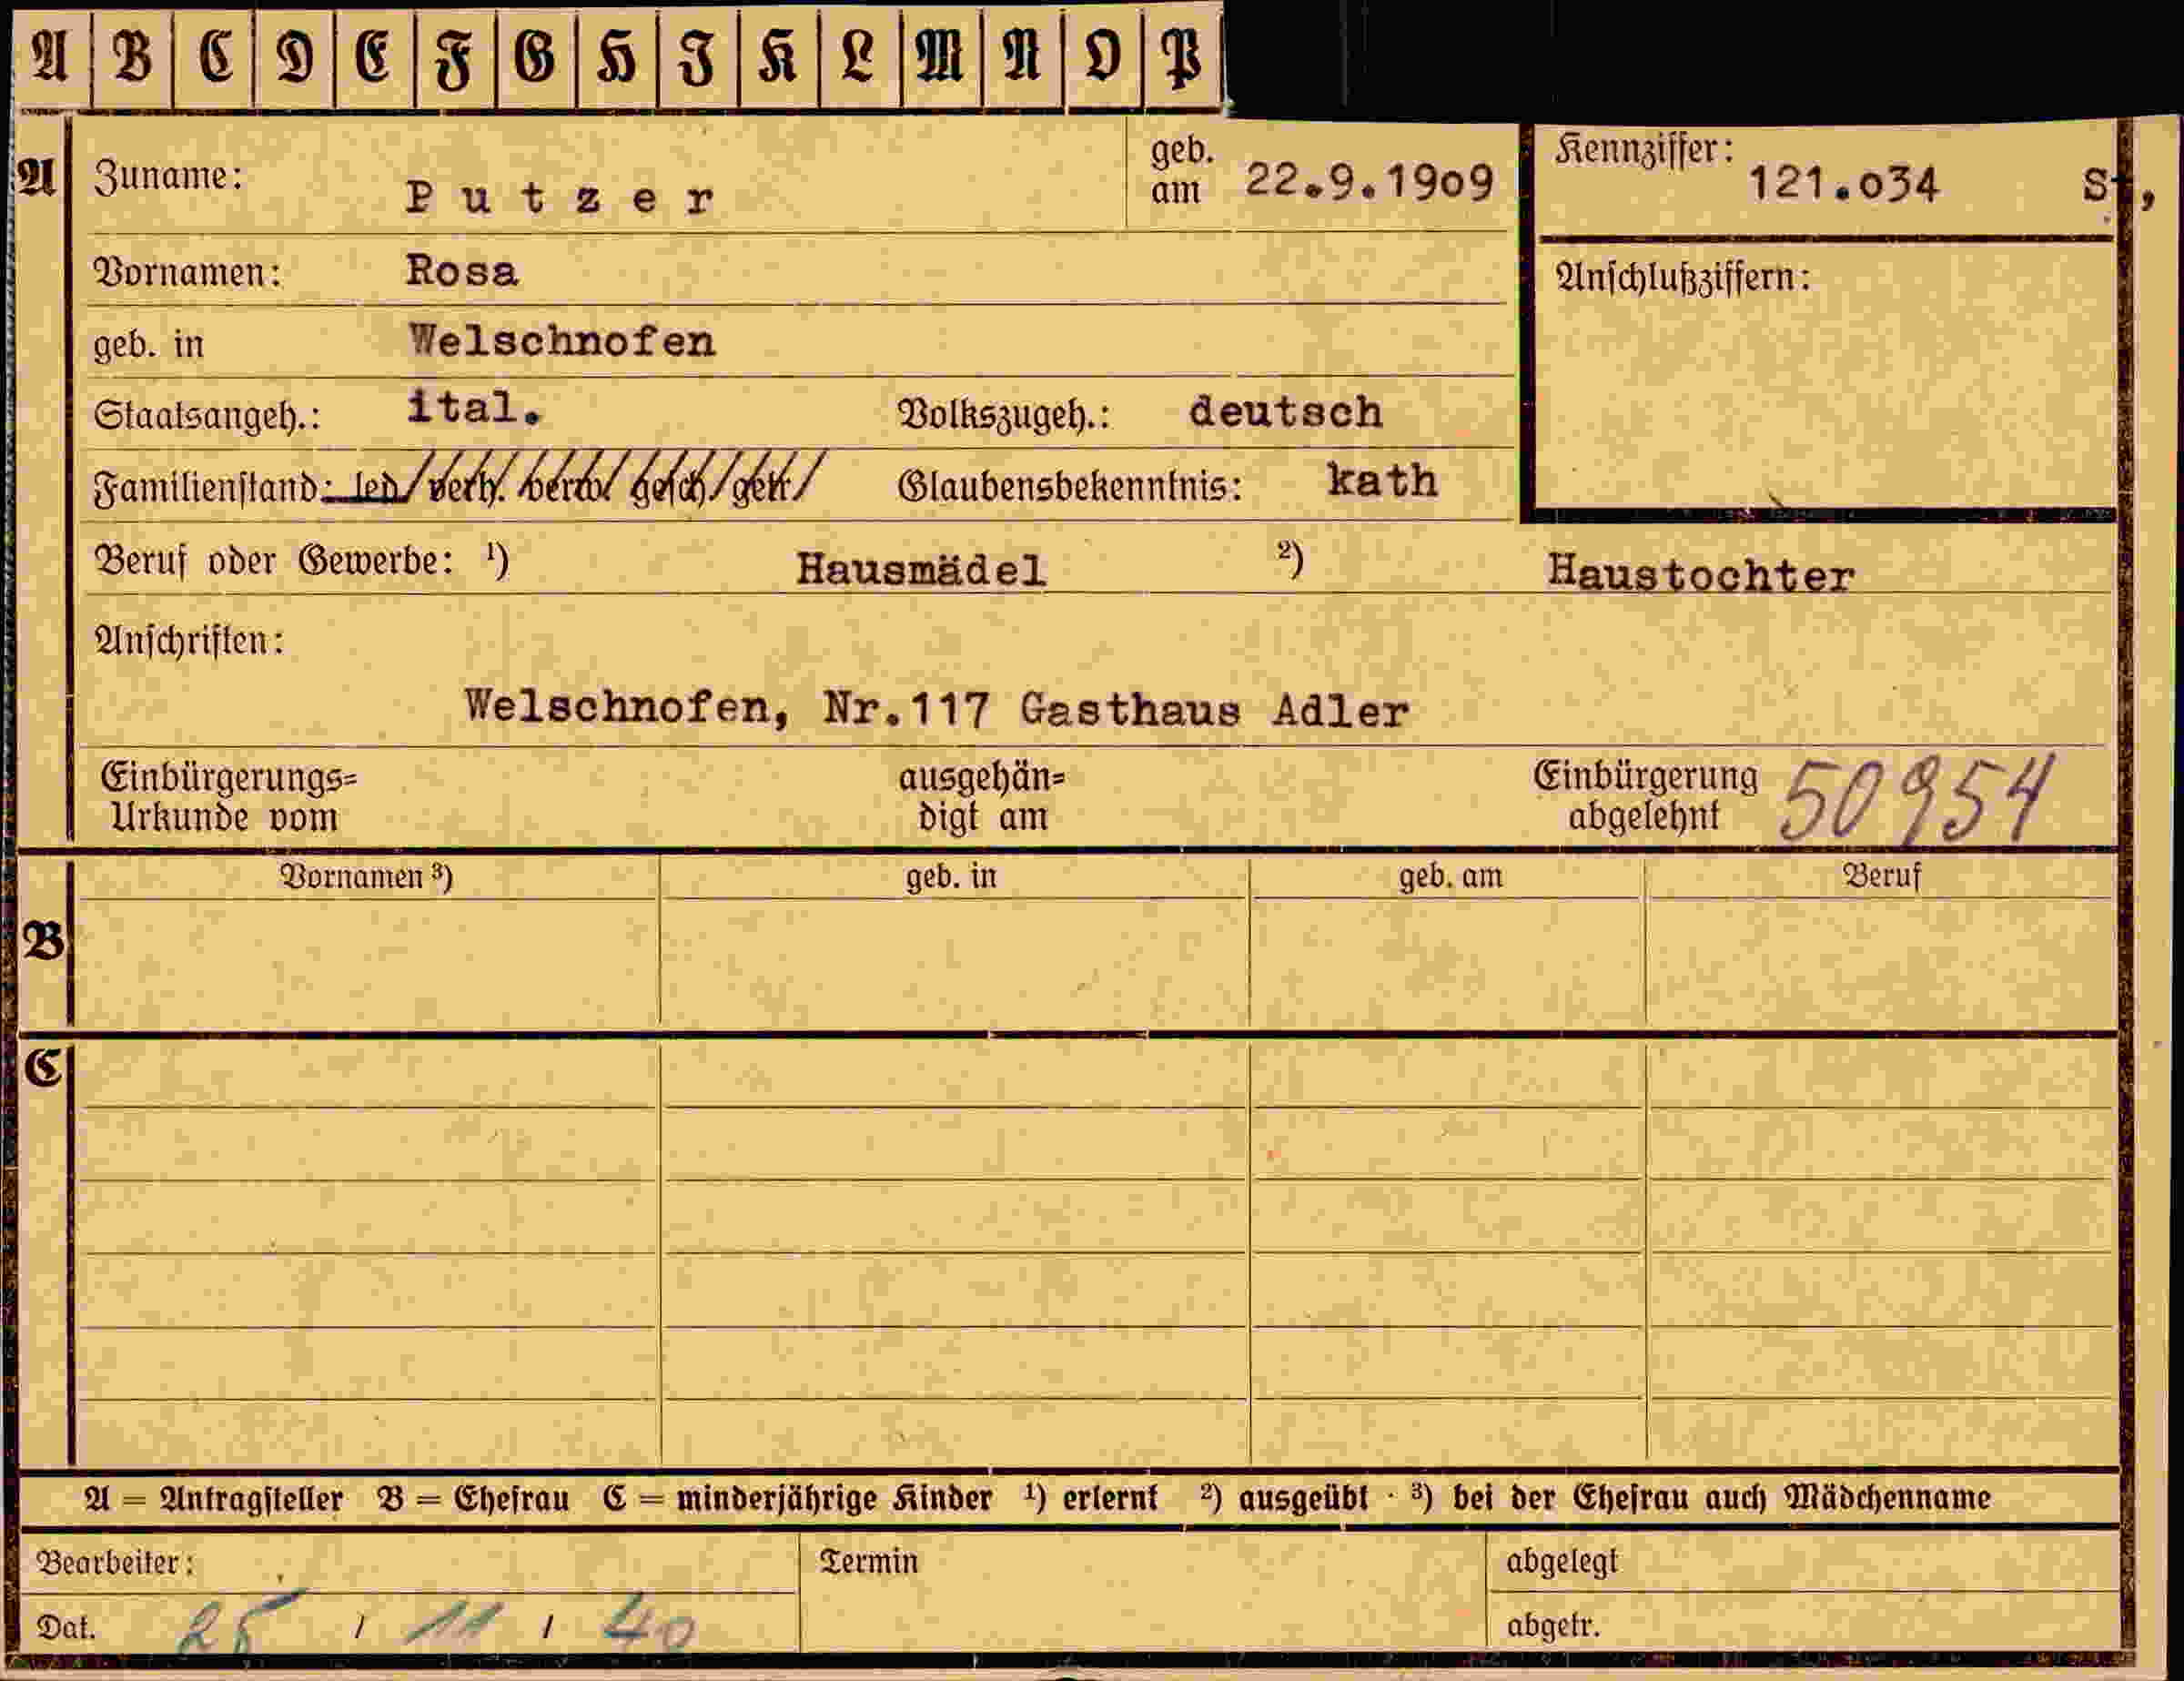 A B C D E F G H I K L M N O P
A Zuname: Putzer geb. am 22.9.1909 Kennziffer: 121.034 St,
Vornamen: Rosa Anschlußziffern:
geb. in Welschnofen
Staatsangeh.: ital. Volkszugeh.: deutsch
Familienstand: led/verh./verw/gesch/getr/ Glaubensbekenntnis: kath
Beruf oder Gewerbe: ¹) Hausmädel ²) Haustochter
Anschriften:
Welschnofen, Nr.117 Gasthaus Adler
Einbürgerungs= ausgehän= Einbürgerung 50954
Urkunde vom digt am abgelehnt
Vornamen ³) geb. in geb. am Beruf
B
C
A = Antragsteller B = Ehefrau C = minderjährige Kinder ¹) erlernt ²) ausgeübt · ³) bei der Ehefrau auch Mädchenname
Bearbeiter: Termin abgelegt
Dat. 25 / 11 / 40 abgetr.